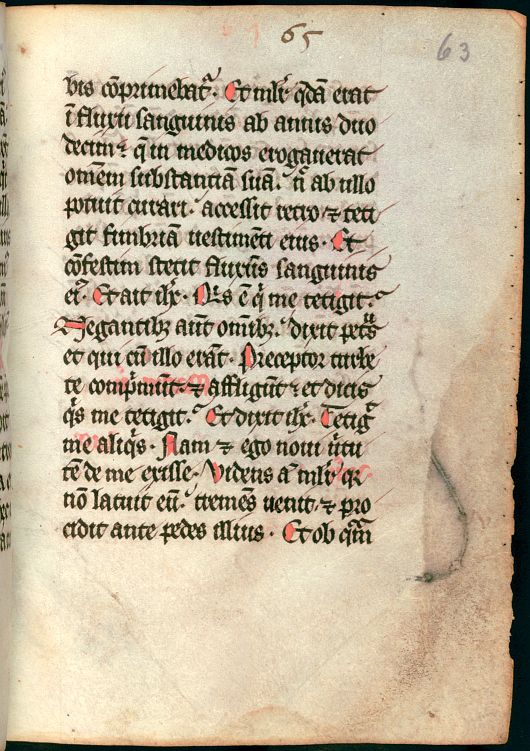 65
63
bis cōprimebat᷑. Et mlr̄ q̄dā erat
ī fluxu sanguinis ab annis duo
decim⁊ q̄ in medicos erogauerat
omēm substanciam suā. n̄ ab ullo
potuit curari. accessit retro ⁊ teti
git fimbriā uestimēti eius. Et
cōfestim stetit fluxus sanguinis
ei᷒. Et ait ih̄c. Q̄is ē q̄ me tetigit.
Negantibꝫ aut̄ omībꝫ. dixit petr᷒
et qui cū illo erāt. Preceptor turbe
te comp̄munt ⁊ affligūt ⁊ et dicis
q̄s me tetigit. Et dixit ih̄c. Tetig̅
me aliq̄s. Nam ⁊ ego noui uirtu
tē de me exisse. Videns ā mlr̄ qr
nō latuit eū. tremēs uenit ⁊ pro
cidit ante pedes illius. Et ob q̄m